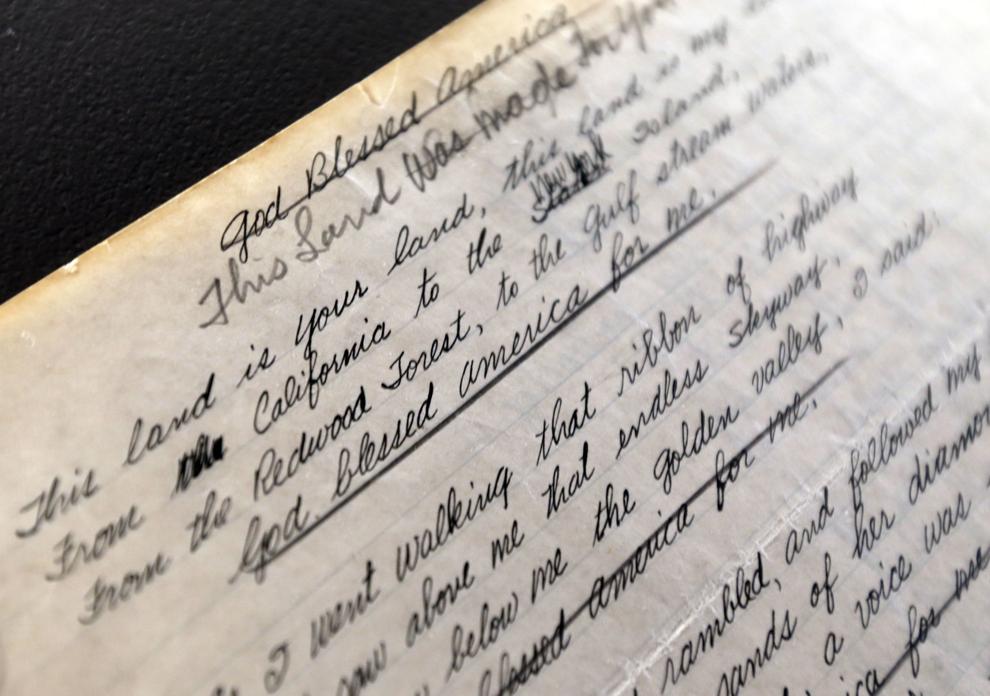 God Blessed America
This Land Was made For You
This land is your land, this land is my
From California to the Island,
From the Redwood Forest, to the Gulf stream waters,
God blessed america for me.
I went walking that ribbon of highway
saw above me that endless skyway,
below me the golden valley, I said:
blessed america for me.
rambled, and followed my
sands of her
a voice was
for me